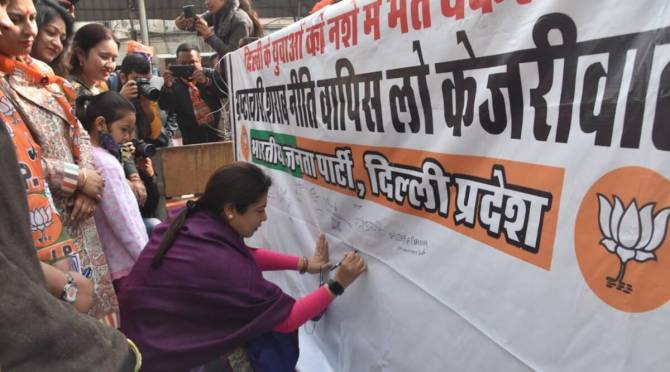 दिल्ली के युवाओं को नशे में मत
शराब नीति वापिस लो केजरीवाल
भारतीय जनता पार्टी, दिल्ली प्रदेश